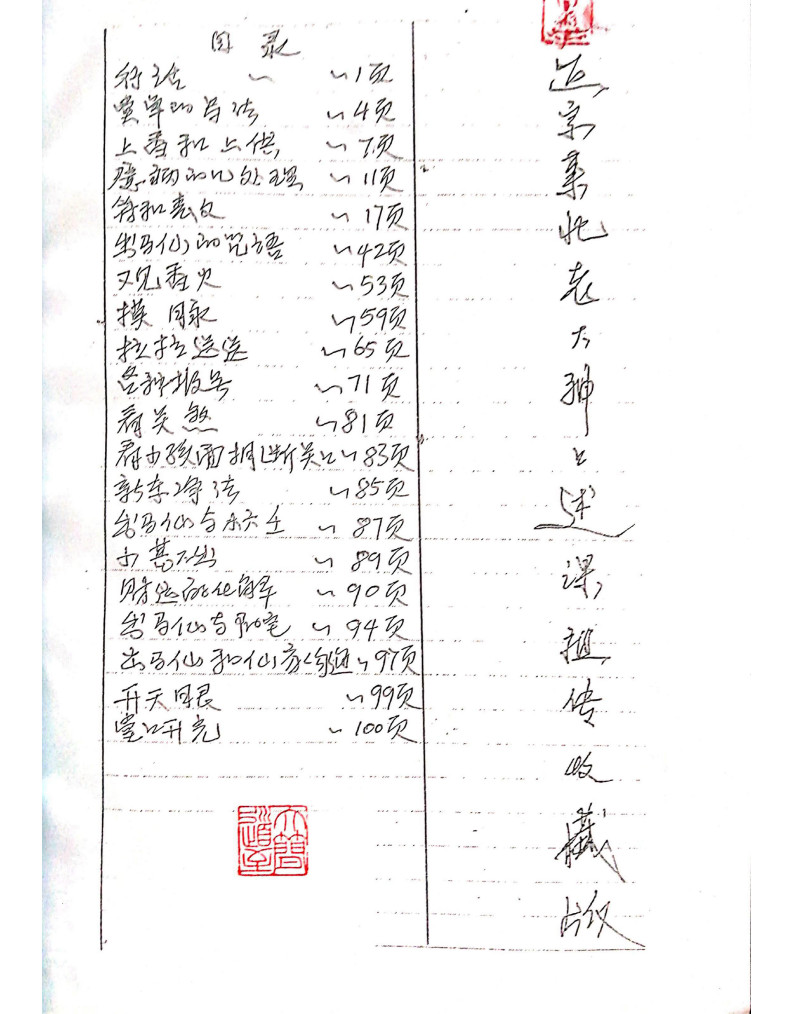 目录
行话 ~ ~1页
堂单的写法 ~4页
上香和上供 ~7页
癔病的化处理 ~11页
符和表文 ~17页
出马仙的咒语 ~42页
又见香火 ~53页
~59页
拉拉送送 ~65页
各种报号 ~71页
看关煞 ~81页
看小孩面相断关口 ~83页
新车净法 ~85页
出马仙与六壬 ~87页
~89页
财运的化解 ~90页
出马仙与阴宅 ~94页
出马仙和仙家沟通 ~97页
开天目眼 ~99页
堂口开光 ~100页
大道至简
东北老大神口述课
传收藏版